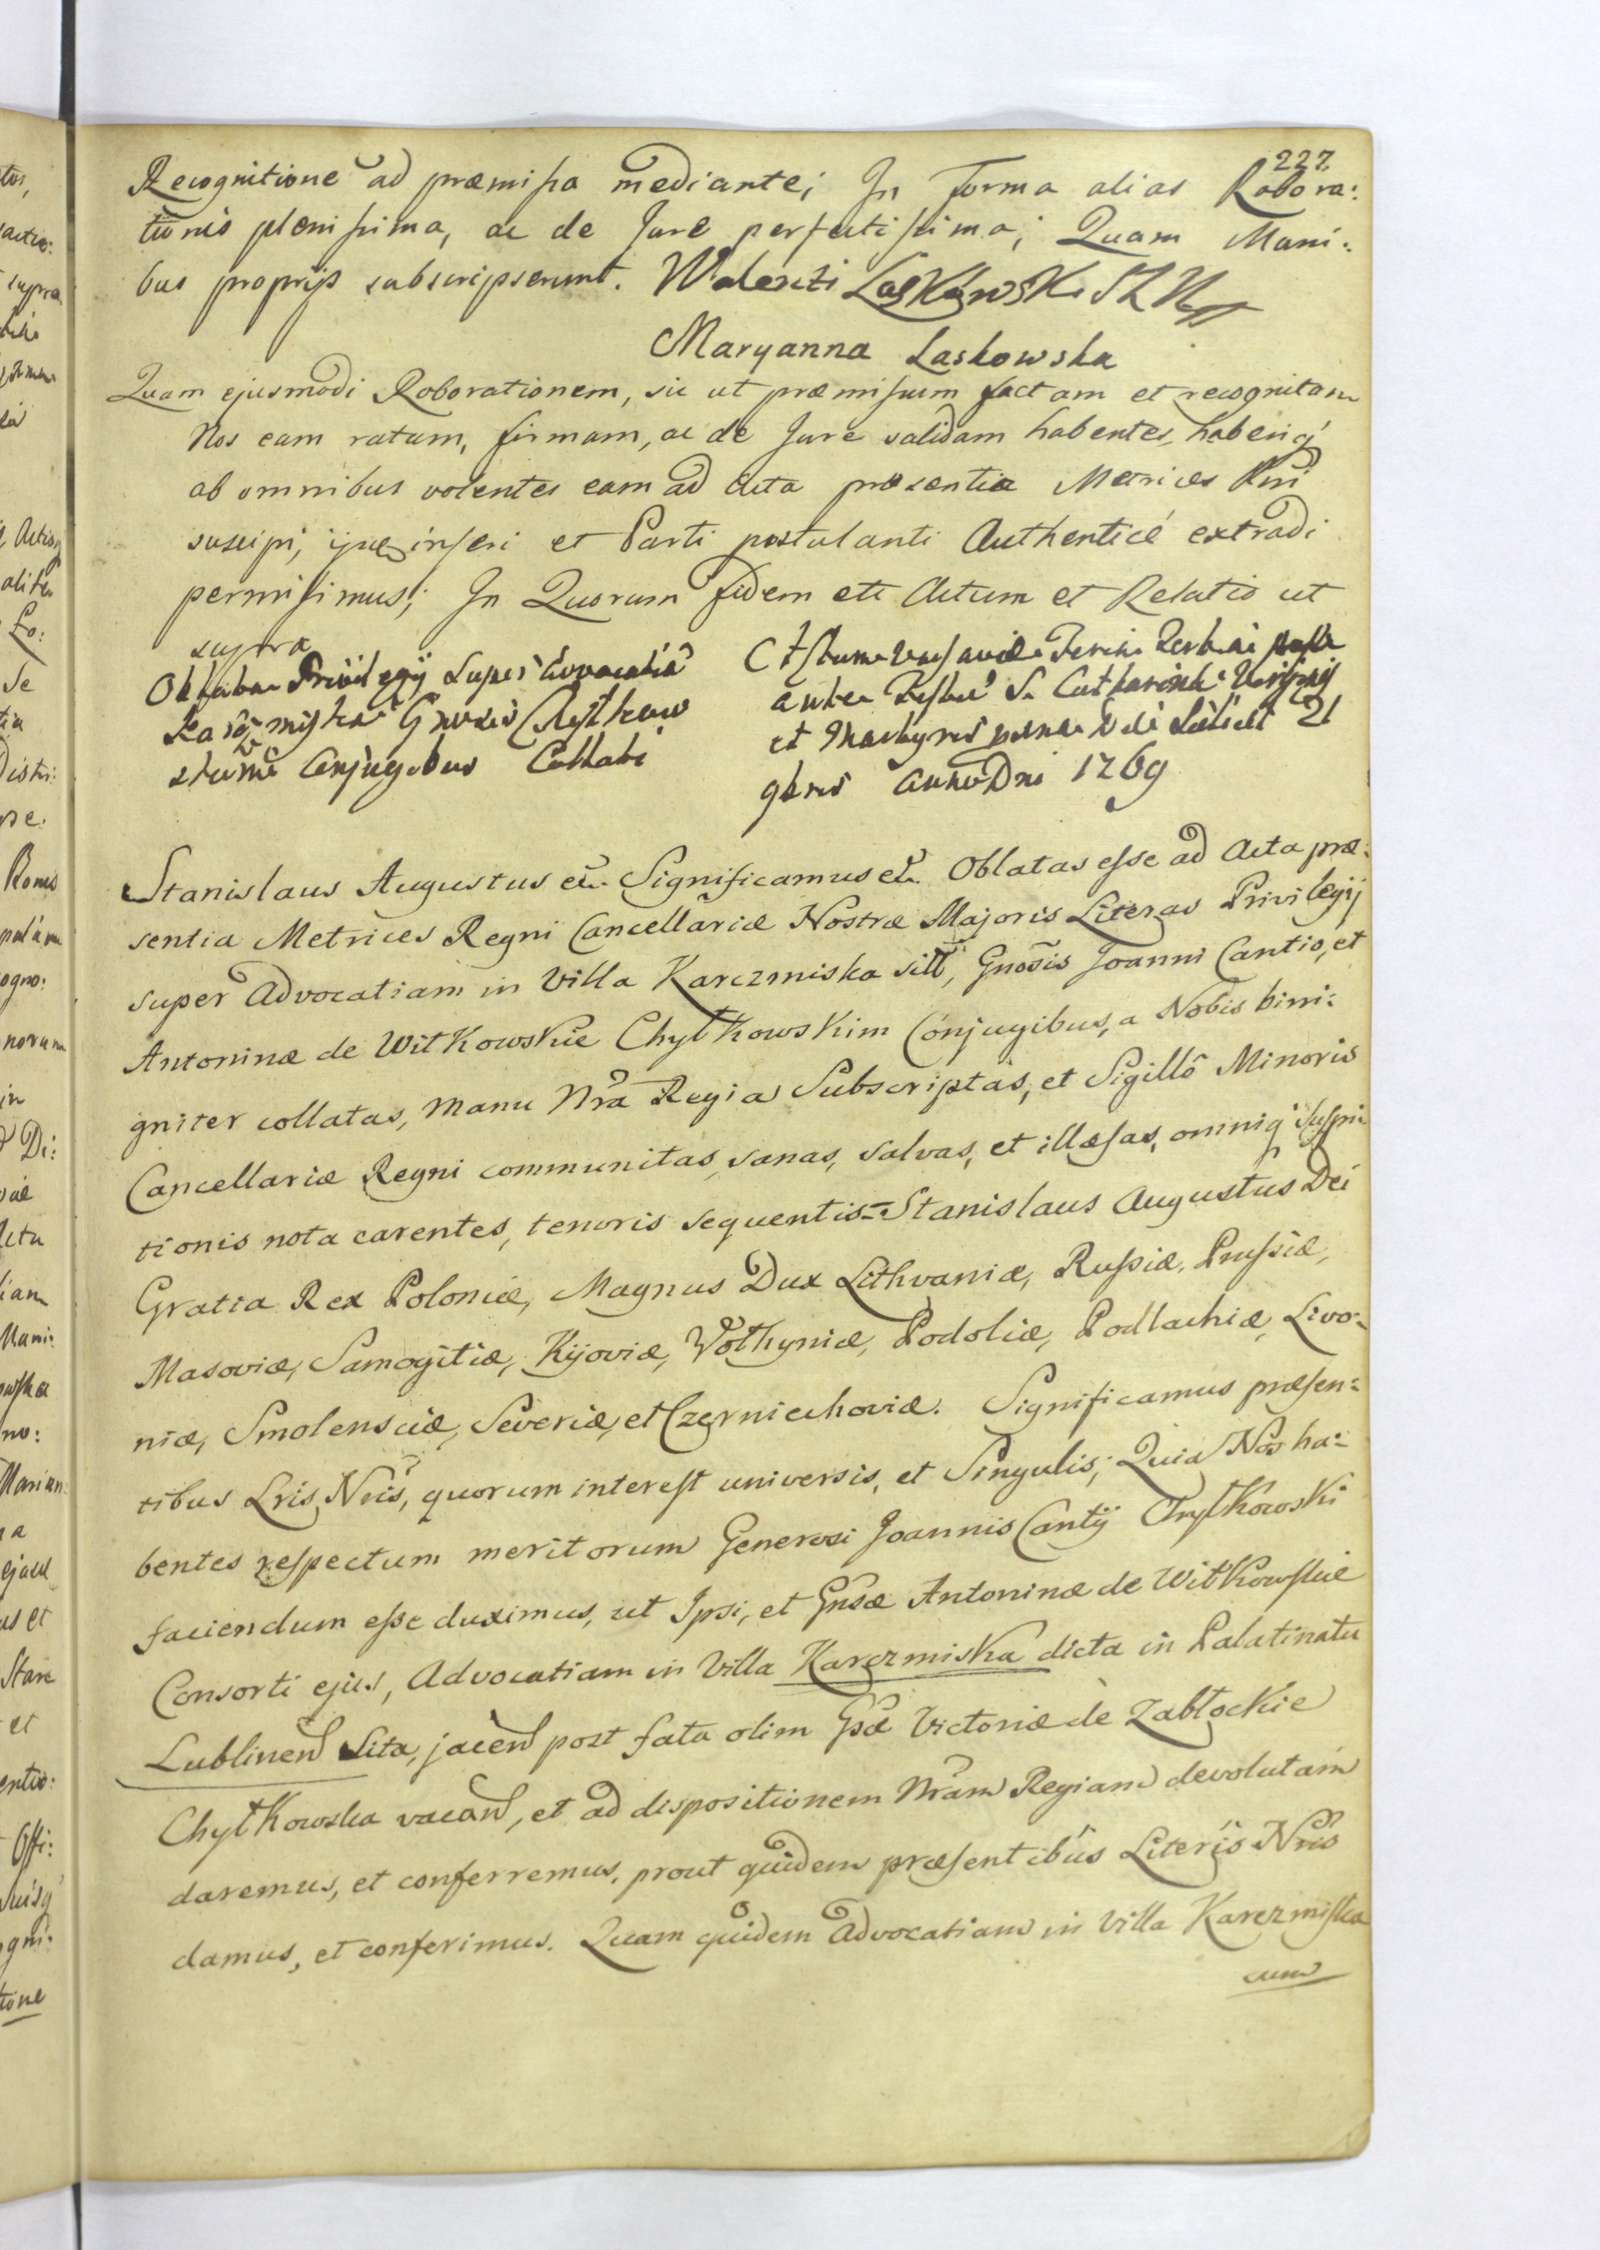 227.
Recognitione ad præmissa mediante; In forma alias Robora:
tionis plenissima, ac de Jure perfectissima; Quam Mani:
bus proprijs subscripserunt. Walenti Laskowski
Maryanna Laskowska
Quam ejusmodi Roborationem, sic ut præmissum factam et recognitam
Nos eam ratam, firmam, ac de Jure validam habentes, haberiq'
ab omnibus volentes eam ad Acta præsentia Metrices Rni
suscipi, ijsq inseri et Parti postulanti Authenticè extradi
permisimus; In Quorum fidem etc Actum et Relatio ut
supra
Oblata Privilegij super Advocatia
Karczmiska Gnosis Chylkow
skim Conjugibus Collati
Actum Varsaviæ Feria Tertia
ante Festum S. Catharinæ Virginis
et Martyris 21
9bris Anno Dni 1769
Stanislaus Augustus etc. Significamus etc. Oblatas esse ad Acta præ:
sentia Metrices Regni Cancellariæ Nostræ Majoris Literas Privilegij
super Advocatiam in Villa Karczmiska sitt, Gnosis Joanni Cantio, et
Antoninæ de Witkowskie Chylkowskim Conjugibus, a Nobis beni:
gniter collatas, Manu Nra Regia Subscriptas, et Sigillô Minoris
Cancellariæ Regni communitas, sanas, salvas, et illæsas, omniq' suspi:
tionis nota carentes, tenoris sequentis = Stanislaus Augustus Dei
Gratia Rex Poloniæ, Magnus Dux Lithvaniæ, Russiæ, Prussiæ,
Masoviæ, Samogitiæ, Kijoviæ, Volhyniæ, Podoliæ, Podlachiæ, Livo:
niæ, Smolensciæ, Severiæ, et Czerniechoviæ. Significamus præsen:
tibus Lris Nris, quorum interest universis, et Singulis; Quia Nos ha:
bentes respectum meritorum Generosi Joannis Cantij Chylkowski
faciendum esse duximus, ut Ipsi, et Gnsæ Antoninæ de Witkowskie
Consorti ejus, Advocatiam in Villa Karczmiska dicta in Palatinatu
Lublinen Sita, jacen post fata olim Gsæ Victoriæ de Zabłockie
Chylkowska vacan, et ad dispositionem Nram Regiam devolutam
daremus, et conferremus, prout quidem præsentibûs Literîs Nris
damus, et conferimus. Quam quidem Advocatiam in Villa Karczmiska
cum